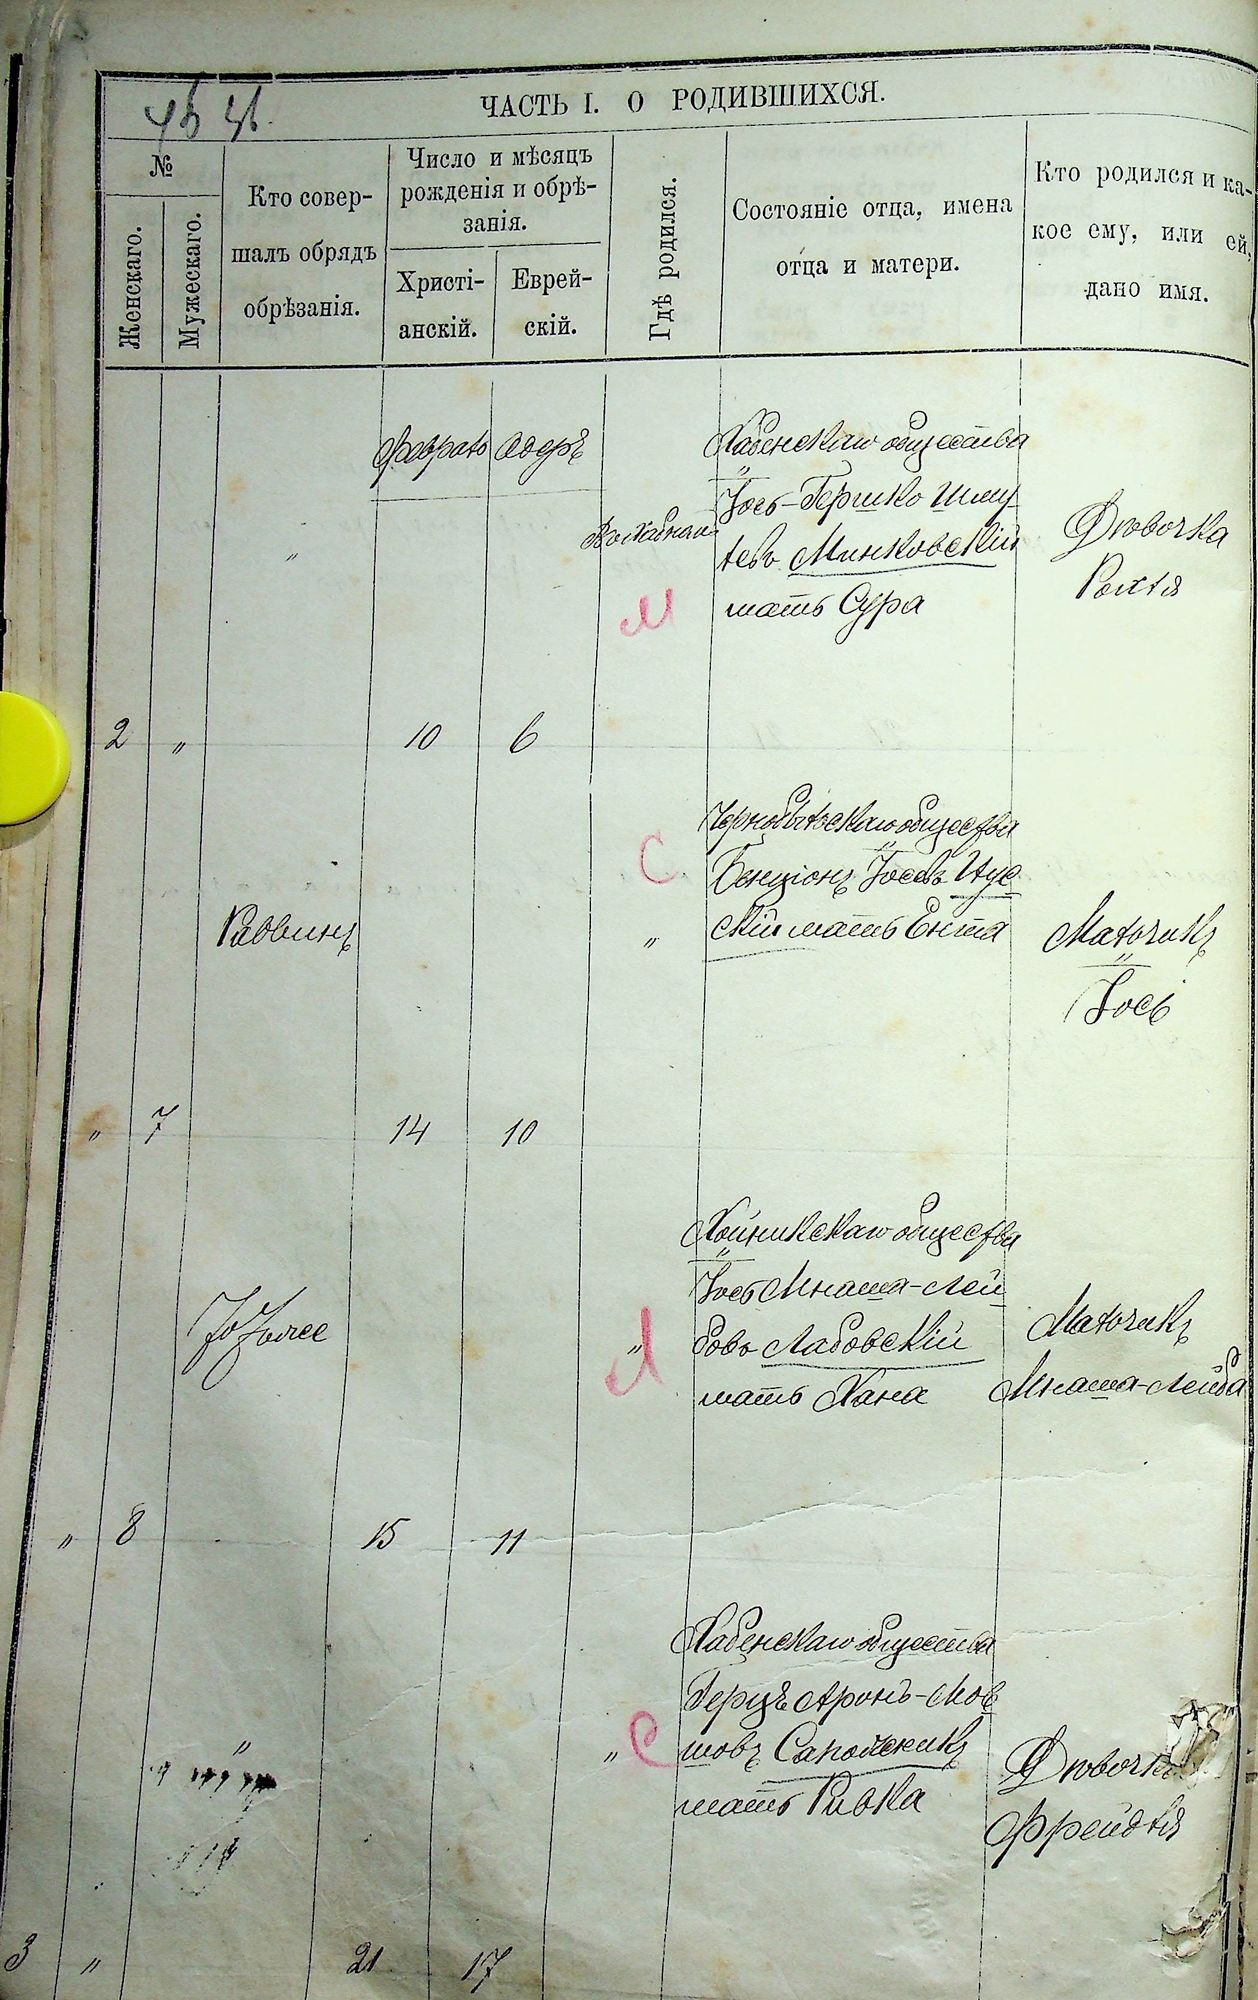 ЧАСТЬ I. О РОДИВШИХСЯ.
№
Женскаго.
Мужескаго.
Кто совер-
шалъ обрядъ
обрѣзанія.
Число и мѣсяцъ
рожденія и обрѣ-
занія.
Христі-
анскій.
Еврей-
скій.
Гдѣ родился.
Состояніе отца, имена
отца и матери.
Кто родился и ка-
кое ему, или ей,
дано имя.
Февраль
Адеръ
Хабенскаго общества
Іось-Гершко Шму
левъ Минковскій
мать Сура
Дѣвочка
Рохля
М
2 " 10 6
Чернобыльскаго общества
Бенціонъ Іосевъ
скій мать Ента
С
Раввинъ
"
Мальчикъ
Іось
" 7 14 10
Хойникскаго общества
Іось Мнаша-Лей
бовъ Лабовскій
мать Хана
То Тоже
"
Л
Мальчикъ
Мнаша-Лейба
" 8 15 11
Хабенскаго общества
Герцъ Аронъ-Мов
шовъ
мать Ривка
"
"
С
Дѣвочка
Фрейдля
3 " 21 17